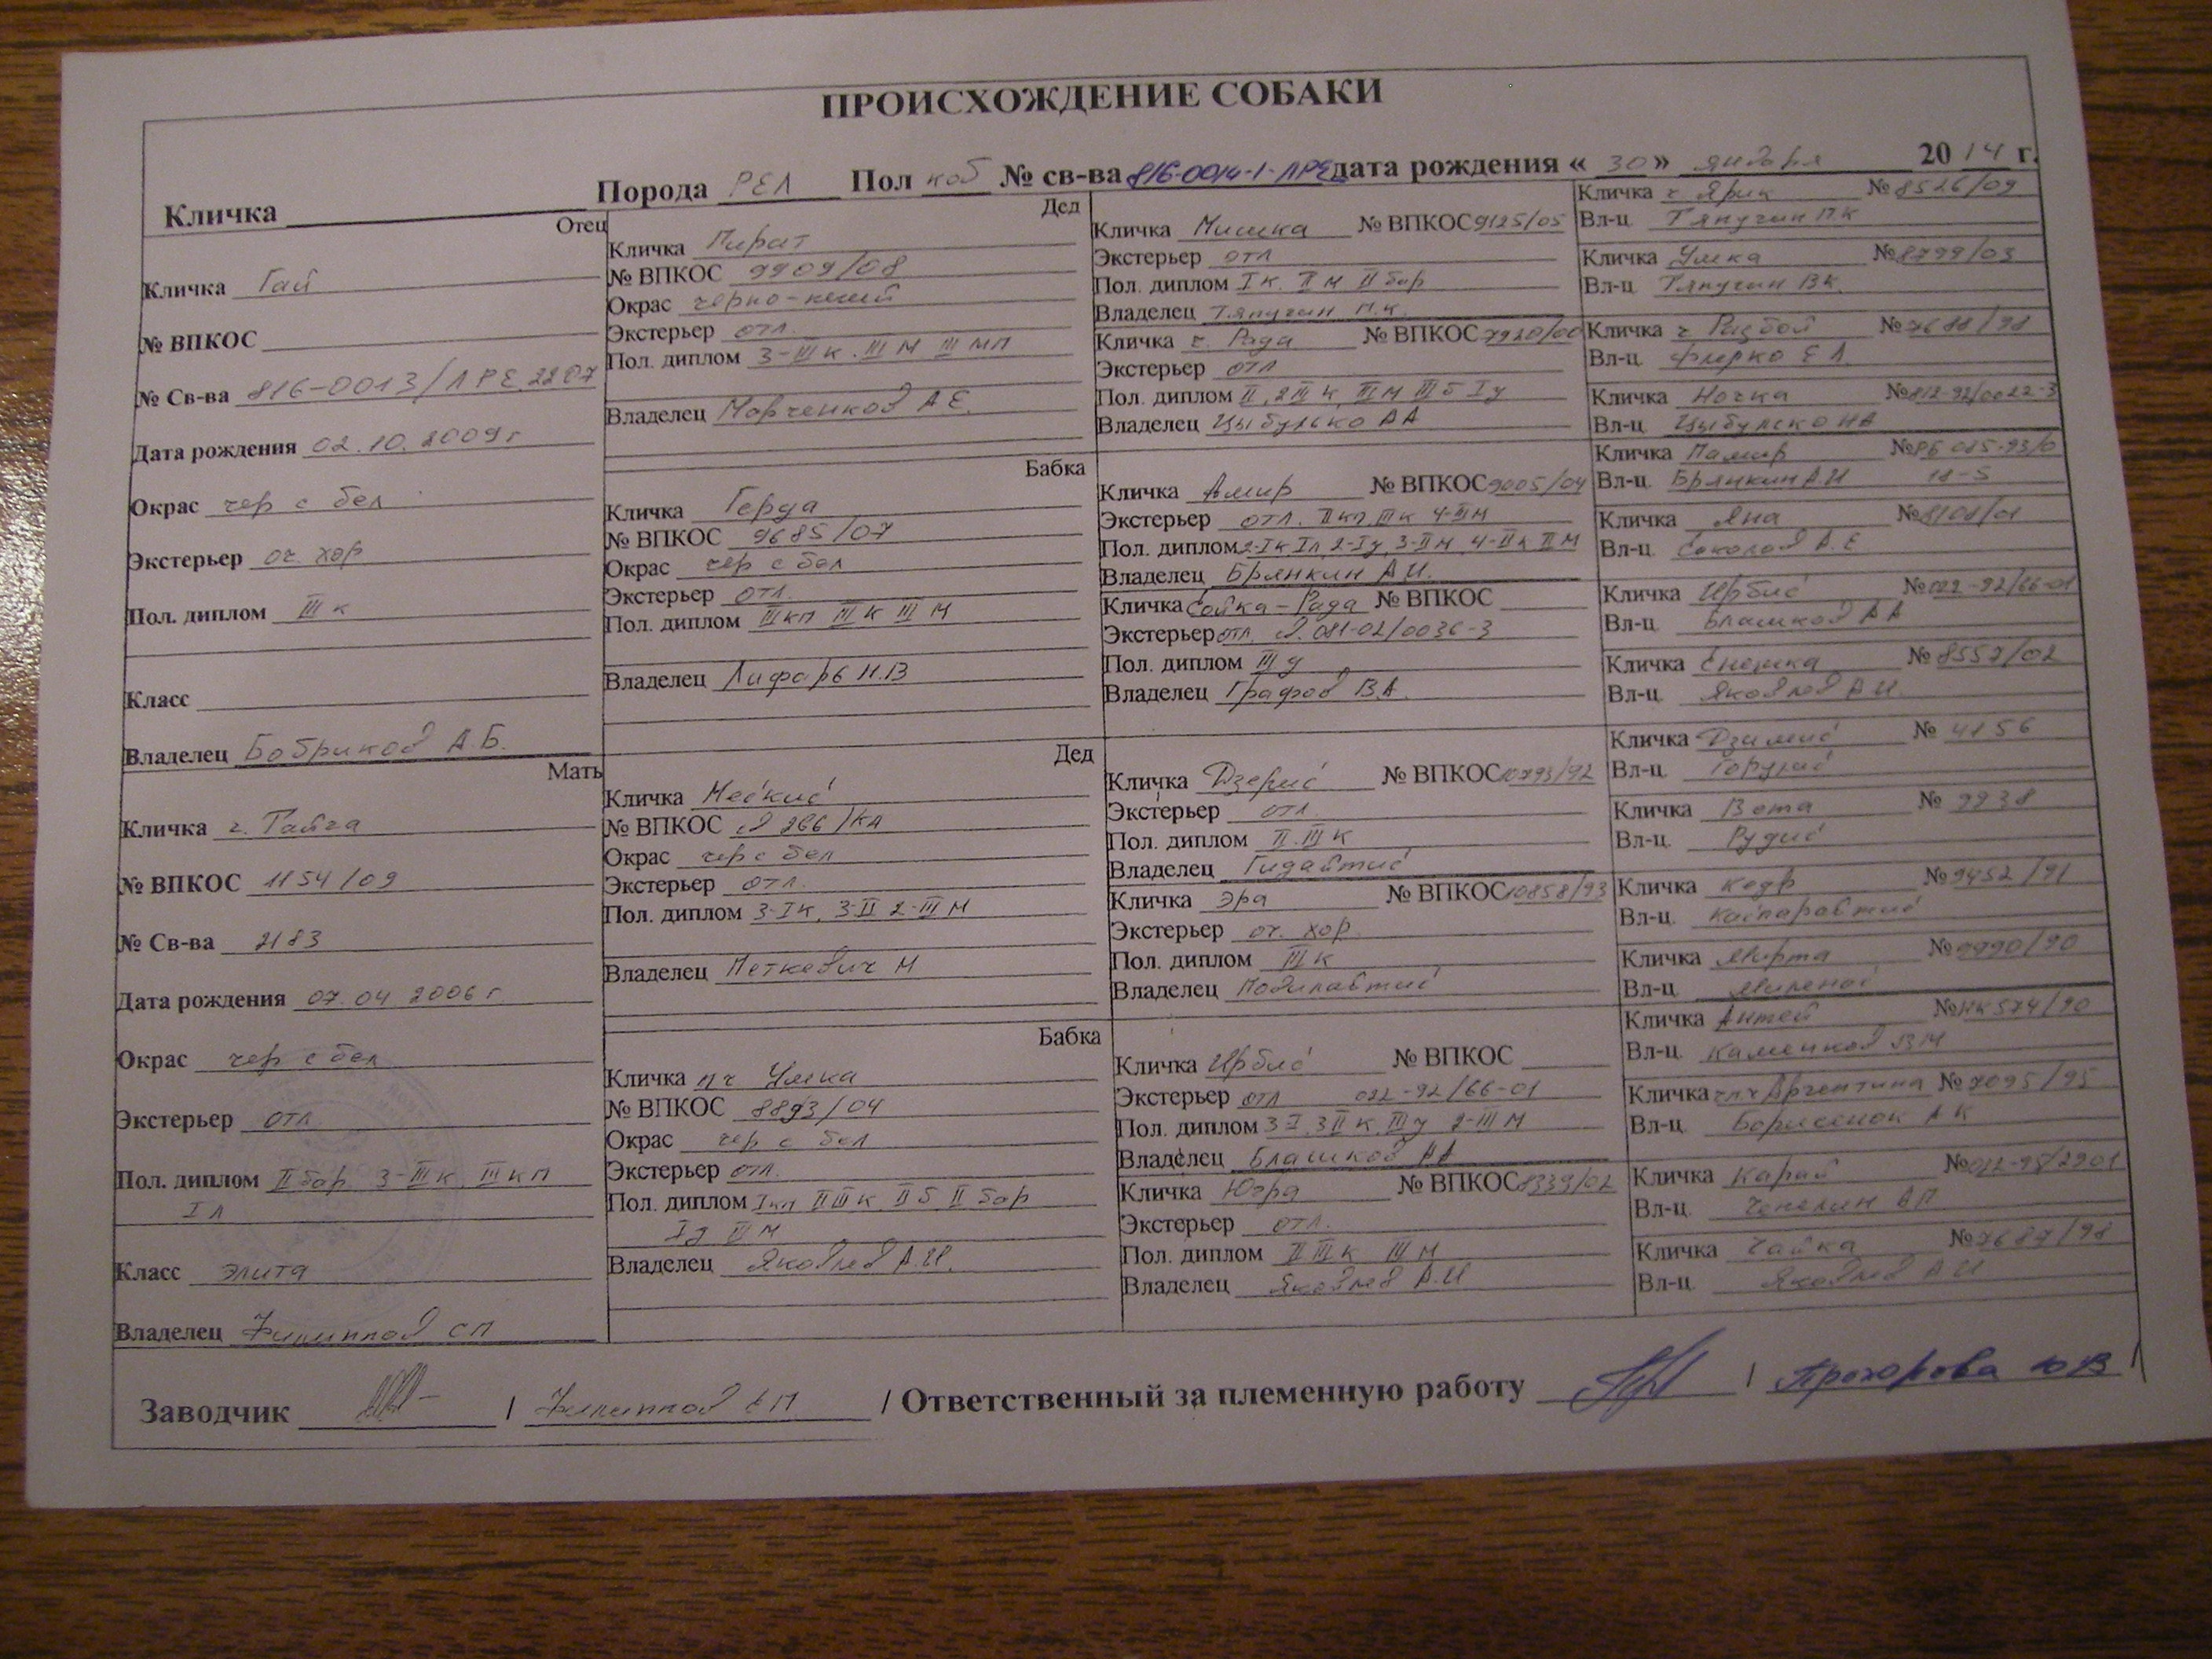 ПРОИСХОЖДЕНИЕ СОБАКИ
Кличка Порода РЕЛ Пол коб № св-ва 816-0014-1-ЛРЕ дата рождения « 30 » января 20 14 г.
Отец
Кличка Гай
№ ВПКОС
№ Св-ва 816-0013/ЛРЕ 2207
Дата рождения 02.10.2009г
Окрас чер с бел
Экстерьер оч. хор
Пол. диплом III к
Класс
Владелец Бобриков А Б.
Мать
Кличка ч. Тайга
№ ВПКОС 1154/09
№ Св-ва 2183
Дата рождения 07.04 2006 г
Окрас чер с бел
Экстерьер отл
Пол. диплом II бар 3-III к. III кп
I л
Класс элита
Владелец Филиппов С П
Дед
Кличка Пират
№ ВПКОС 9909/08
Окрас черно-пегий
Экстерьер отл.
Пол. диплом 3-III к. III м III мп
Владелец Марченков А Е.
Бабка
Кличка Герда
№ ВПКОС 9685/07
Окрас чер с бел
Экстерьер отл.
Пол. диплом III кп III к III м
Владелец Лифарь Н.В
Дед
Кличка
№ ВПКОС 266/КА
Окрас чер с бел
Экстерьер отл.
Пол. диплом 3-I к, 3-II 2-III м
Владелец Петкевич М
Бабка
Кличка пч Умка
№ ВПКОС 8893/04
Окрас чер с бел
Экстерьер отл.
Пол. диплом I кп II III к II б II бар
I у II м
Владелец Яковлев А.И.
Кличка Мишка № ВПКОС 9125/05
Экстерьер отл
Пол. диплом I к. II м II бар
Владелец Тяпугин П.К.
Кличка ч. Рада № ВПКОС 7920/00
Экстерьер отл
Пол. диплом II, 2 III к, III м III б I у
Владелец Цыбулько АА
Кличка Амир № ВПКОС 9005/04
Экстерьер отл. II кп, III к 4-III м
Пол. диплом 2-I к I л, 2-I у, 3-II м, 4-II к II м
Владелец Брянкин А И.
Кличка Сойка-Рада № ВПКОС
Экстерьер отл. 081-02/0036-3
Пол. диплом III у
Владелец Графов В.А.
Кличка Дзерис № ВПКОС 10793/92
Экстерьер отл.
Пол. диплом II. III к
Владелец Гидайтис
Кличка Эра № ВПКОС 10858/93
Экстерьер оч. хор.
Пол. диплом III к
Владелец
Кличка Ирбис № ВПКОС
Экстерьер отл 022-92/66-01
Пол. диплом 3 I, 3 II к, III у 2-III м
Владелец Блашков АА
Кличка Югра № ВПКОС 8339/02
Экстерьер отл.
Пол. диплом II III к III м
Владелец Яковлев А.И
Кличка ч. Ярик № 8526/09
Вл-ц Тяпугин П.К
Кличка Умка № 8799/03
Вл-ц Тяпугин В К.
Кличка ч Разбой № 7688/98
Вл-ц Флерко Е Л.
Кличка Ночка № 812-92/0022-3
Вл-ц Цыбулько НА
Кличка Памир № РБ 085-93/0
Вл-ц Брянкин А И 18-5
Кличка Яна № 8108/01
Вл-ц Соколов А. Е
Кличка Ирбис № 022-92/66-01
Вл-ц Блашков А А
Кличка Снежка № 8557/02
Вл-ц Яковлев А.И.
Кличка Дзимис № 4856
Вл-ц
Кличка Вета № 9938
Вл-ц Рудис
Кличка Кедр № 9452/91
Вл-ц Каспаравтис
Кличка Мирта № 9990/90
Вл-ц
Кличка Антей № НК 574/90
Вл-ц Каменков В М
Кличка ч пч Аргентина № 7095/95
Вл-ц Борисенок А К
Кличка Карай № 022-95/2901
Вл-ц Чепелин В П
Кличка Чайка № 7687/98
Вл-ц Яковлев А И
Заводчик / Филиппов С П / Ответственный за племенную работу / Прохорова Ю В /